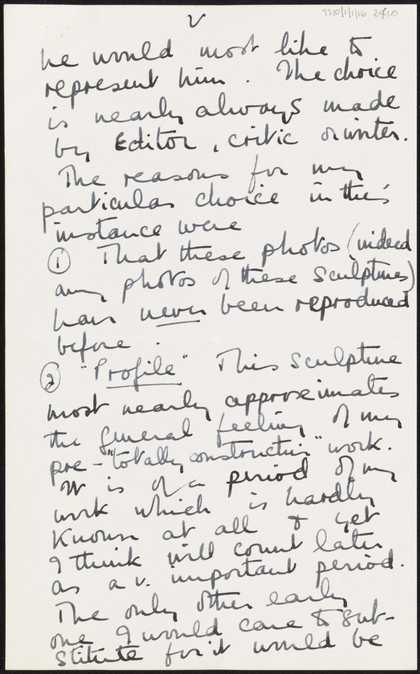 2
he would most like to
represent him. The choice
is nearly always made
by Editor, critic or writer.
The reasons for my
particular choice in this
instance were
① That these photos (indeed
any photos of these sculptures)
have never been reproduced
before.
② "Profile" This Sculpture
most nearly approximates
the general feeling of my
pre-"totally constructive" work.
It is of a period of my
work which is hardly
known at all & yet
I think will count later
as a v. important period.
The only other early
one I would care to sub-
stitute for it would be